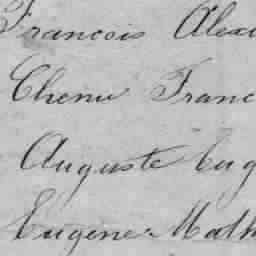 Francois Alex
Chenu Franc
Auguste Eug
Eugene Math